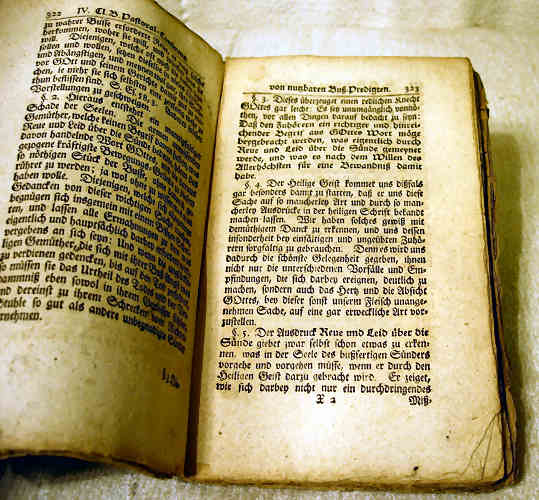 322 IV. Cl. B. Pastoral-
zu wahrer Busse erfordert
herkommen, woher sie will,
will. Diejenigen, welche
sollen und wollen, sehen
und Abängstigen, und
vor GOtt und seinem Gerichte
chen, je mehr sie sich selbsten
thun beflissen sind. S. Es. 58, 3.
Vorstellungen zu gesch
§. 2. Hieraus entstehet ein
Schade der Seelen. Die
Gemüther, welche
Reue und Leid über die Sünde
davon handelnde Wort GOttes
gezogene kräftigste Bewegungs-
so nöthigen Stück der Busse,
rühret zu werden; ja wol ohne
haben wolle. Diejenigen, welche
Gedancken von dieser wichtigen
begnügen sich insgemein mit einem
en, und lassen alle Ermahnungen,
eigentlich und hauptsächlich darauf
vergebens an sich seyn: Und wenn
ligen Gemüther, die sich mit ihrer
zu verdienen gedencken, bis auf
so müssen sie das Urtheil des Todes
dammniß eben sowol in ihrem
und dereinst zu ihrem Schrecken vor
Stuhle so gut als andere unbußfertige
rnehmen.
von nutzbaren Buß-Predigten. 323
§. 3. Dieses überzeuget einen redlichen Knecht
GOttes gar leicht: Es sey unumgänglich vonnö-
then, vor allen Dingen darauf bedacht zu seyn:
Daß den Zuhörern ein richtiger und hinrei-
chender Begrif aus GOttes Wort möge
beygebracht werden, was eigentlich durch
Reue und Leid über die Sünde gemeynet
werde, und was es nach dem Willen des
Allerhöchsten für eine Bewandniß damit
habe.
§. 4. Der Heilige Geist kommet uns dißfals
gar besonders damit zu statten, daß er uns diese
Sache auf so mancherley Art und durch so man-
cherley Ausdrücke in der heiligen Schrift bekandt
machen lassen. Wir haben solches gewiß mit
demüthigem Danck zu erkennen, und uns dessen
insonderheit bey einfältigen und ungeübten Zuhö-
rern sorgfältig zu gebrauchen. Denn es wird uns
dadurch die schönste Gelegenheit gegeben, ihnen
nicht nur die unterschiedenen Vorfälle und Em-
pfindungen, die sich darbey ereignen, deutlich zu
machen, sondern auch das Hertz und die Absicht
GOttes, bey dieser sonst unserm Fleisch unange-
nehmen Sache, auf eine gar erweckliche Art vor-
zustellen.
§. 5. Der Ausdruck Reue und Leid über die
Sünde giebet zwar selbst schon etwas zu erken-
nen, was in der Seele des bußfertigen Sünders
vorgehe und vorgehen müsse, wenn er durch den
Heiligen Geist darzu gebracht wird. Er zeiget,
wie sich darbey nicht nur ein durchdringendes
X 2 Miß-